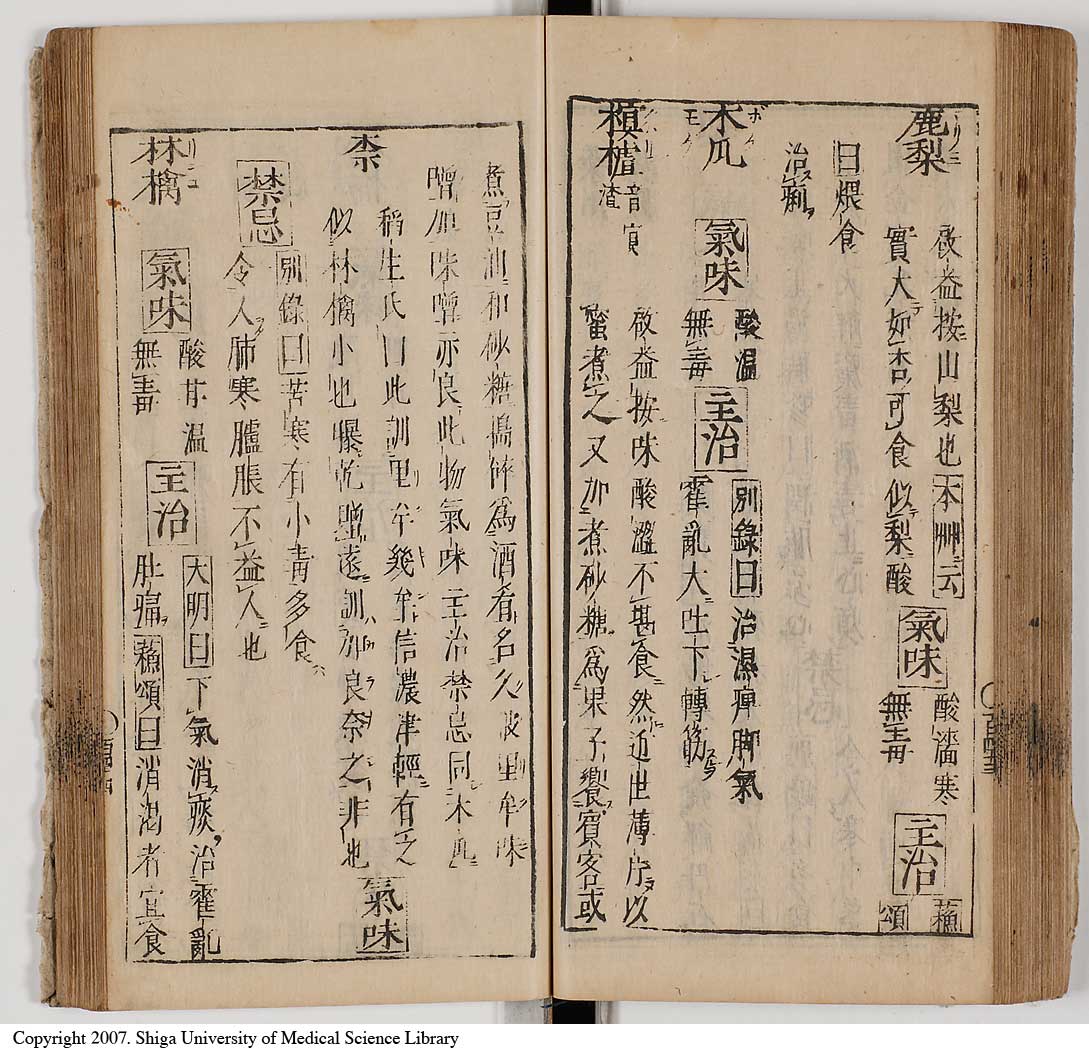 鹿梨
啟益按山梨也本州云
實大如杏可食似梨酸
氣味
酸濇寒
無毒
主治
蘓
頌
曰煨食
治痢
木瓜
氣味
酸温
無毒
主治
別錄曰治濕痺脚氣
霍亂大吐下轉筋
榠樝
音㝠
渣
啟益按味酸澀不堪食然近世薄片以
蜜煮之又加煮砂糖爲果子饗賓客或
煮豆油和砂糖搗碎爲酒肴名久波里牟味
噌加味噌亦良此物氣味主治禁忌同木瓜
柰
稻生氏曰此訓里牟幾牟信濃津輕有之
似林檎小也曝乾鹽遠訓加良奈之非也
氣味
禁忌
別錄曰苦寒有小毒多食
令人肺寒臚脹不益人也
林檎
氣味
酸甘温
無毒
主治
大明曰下氣消痰治霍亂
肚痛蘓頌曰消渴者宜食
Copyright 2007. Shiga University of Medical Science Library